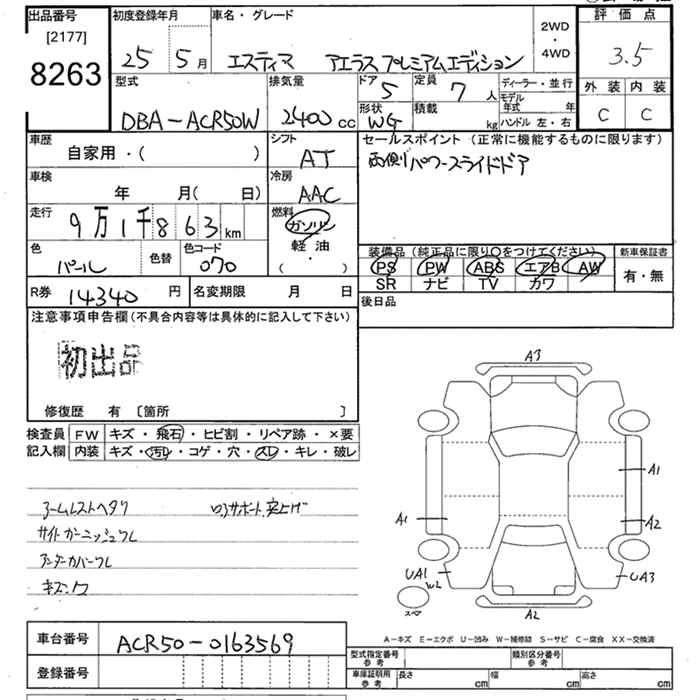 出品番号
[2177]
8263
初度登録年月
25 5月
車名・グレード
エスティマ アエラス プレミアムエディション
2WD
・
4WD
評価点
3.5
外装 内装
C C
型式
DBA-ACR50W
排気量
2400cc
ドア 5
定員 7人
形状 WG
積載 kg
ディーラー・並行
モデル年式 年
ハンドル 左・右
車歴
自家用・( )
シフト
AT
車検
年 月( 日)
冷房
AAC
走行
9万1千863km
燃料
ガソリン
軽油
・
( )
色
パール
色替
色コード
070
セールスポイント (正常に機能するものに限ります)
両側パワースライドドア
装備品 (純正品に限り○をつけてください)
PS PW ABS エアB AW
SR ナビ TV カワ
新車保証書
有・無
R券 14340円
名変期限 月 日
後日品
注意事項申告欄(不具合内容等は具体的に記入して下さい)
初出品
修復歴 有 [箇所 ]
検査員記入欄
FW キズ・飛石・ヒビ割・リペア跡・×要
内装 キズ・汚レ・コゲ・穴・スレ・キレ・破レ
アームレストヘタリ
サイドガーニッシュワレ
アンダーカバーワレ
キズ・凹
A3
A1
A1
A2
UA1
W2
UA3
スペア
A2
A-キズ E-エクボ U-凹み W-補修跡 S-サビ C-腐食 XX-交換済
車台番号
ACR50-0163569
登録番号
型式指定番号 参考
類別区分番号 参考
車庫証明用 参考
長さ cm 幅 cm 高さ cm